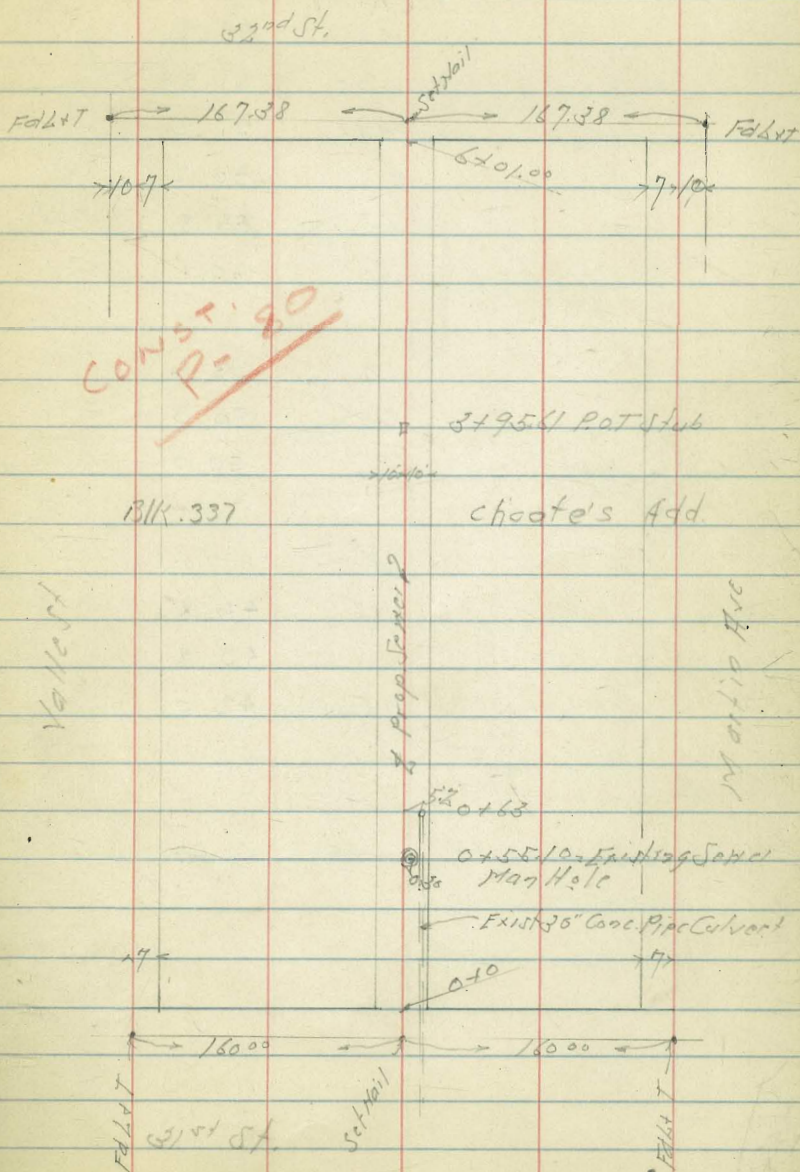 32nd St.
Set Nail
Fd L+T 167.38 167.38 Fd L+T
6+01.00
10 7 7 10
CONST.
P- 80
3+95.61 P.O.T Stub
10 10
Blk. 337 Choate's Add.
Valle St
Prop Sewer
Martin Ave
5.2 0+63
0+55.10 = Existing Sewer
Man Hole
Exist 36" Conc. Pipe Culvert
7 7
0+0
160.00 160.00
Fd L+T
31st St.
Set Nail
Fd L+T